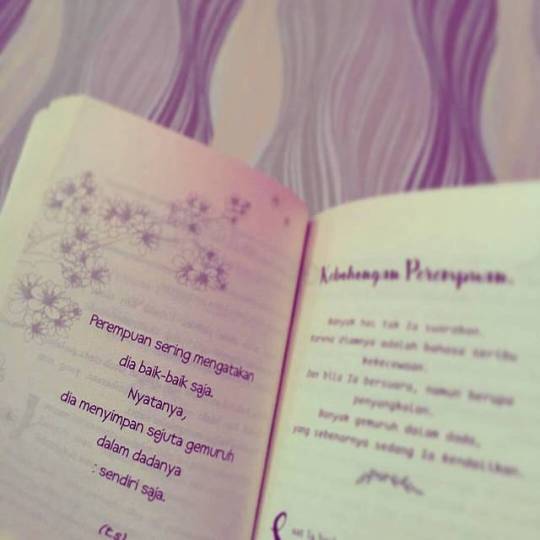 Perempuan sering mengatakan
dia baik-baik saja.
Nyatanya,
dia menyimpan sejuta gemuruh
dalam dadanya
: sendiri saja.
(t.s)
Kebohongan Perempuan.
Banyak hal tak Ia suarakan.
Karena diamnya adalah bahasa seribu
kekecewaan.
Dan bila Ia bersuara, namun berupa
penyangkalan.
Banyak gemuruh dalam dada,
yang sebenarnya sedang Ia kendalikan.